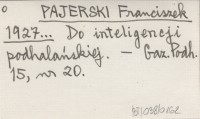 PAJERSKI Franciszek
1927... Do inteligencji
podhalańskiej. — Gaz. Podh.
15, nr 20.